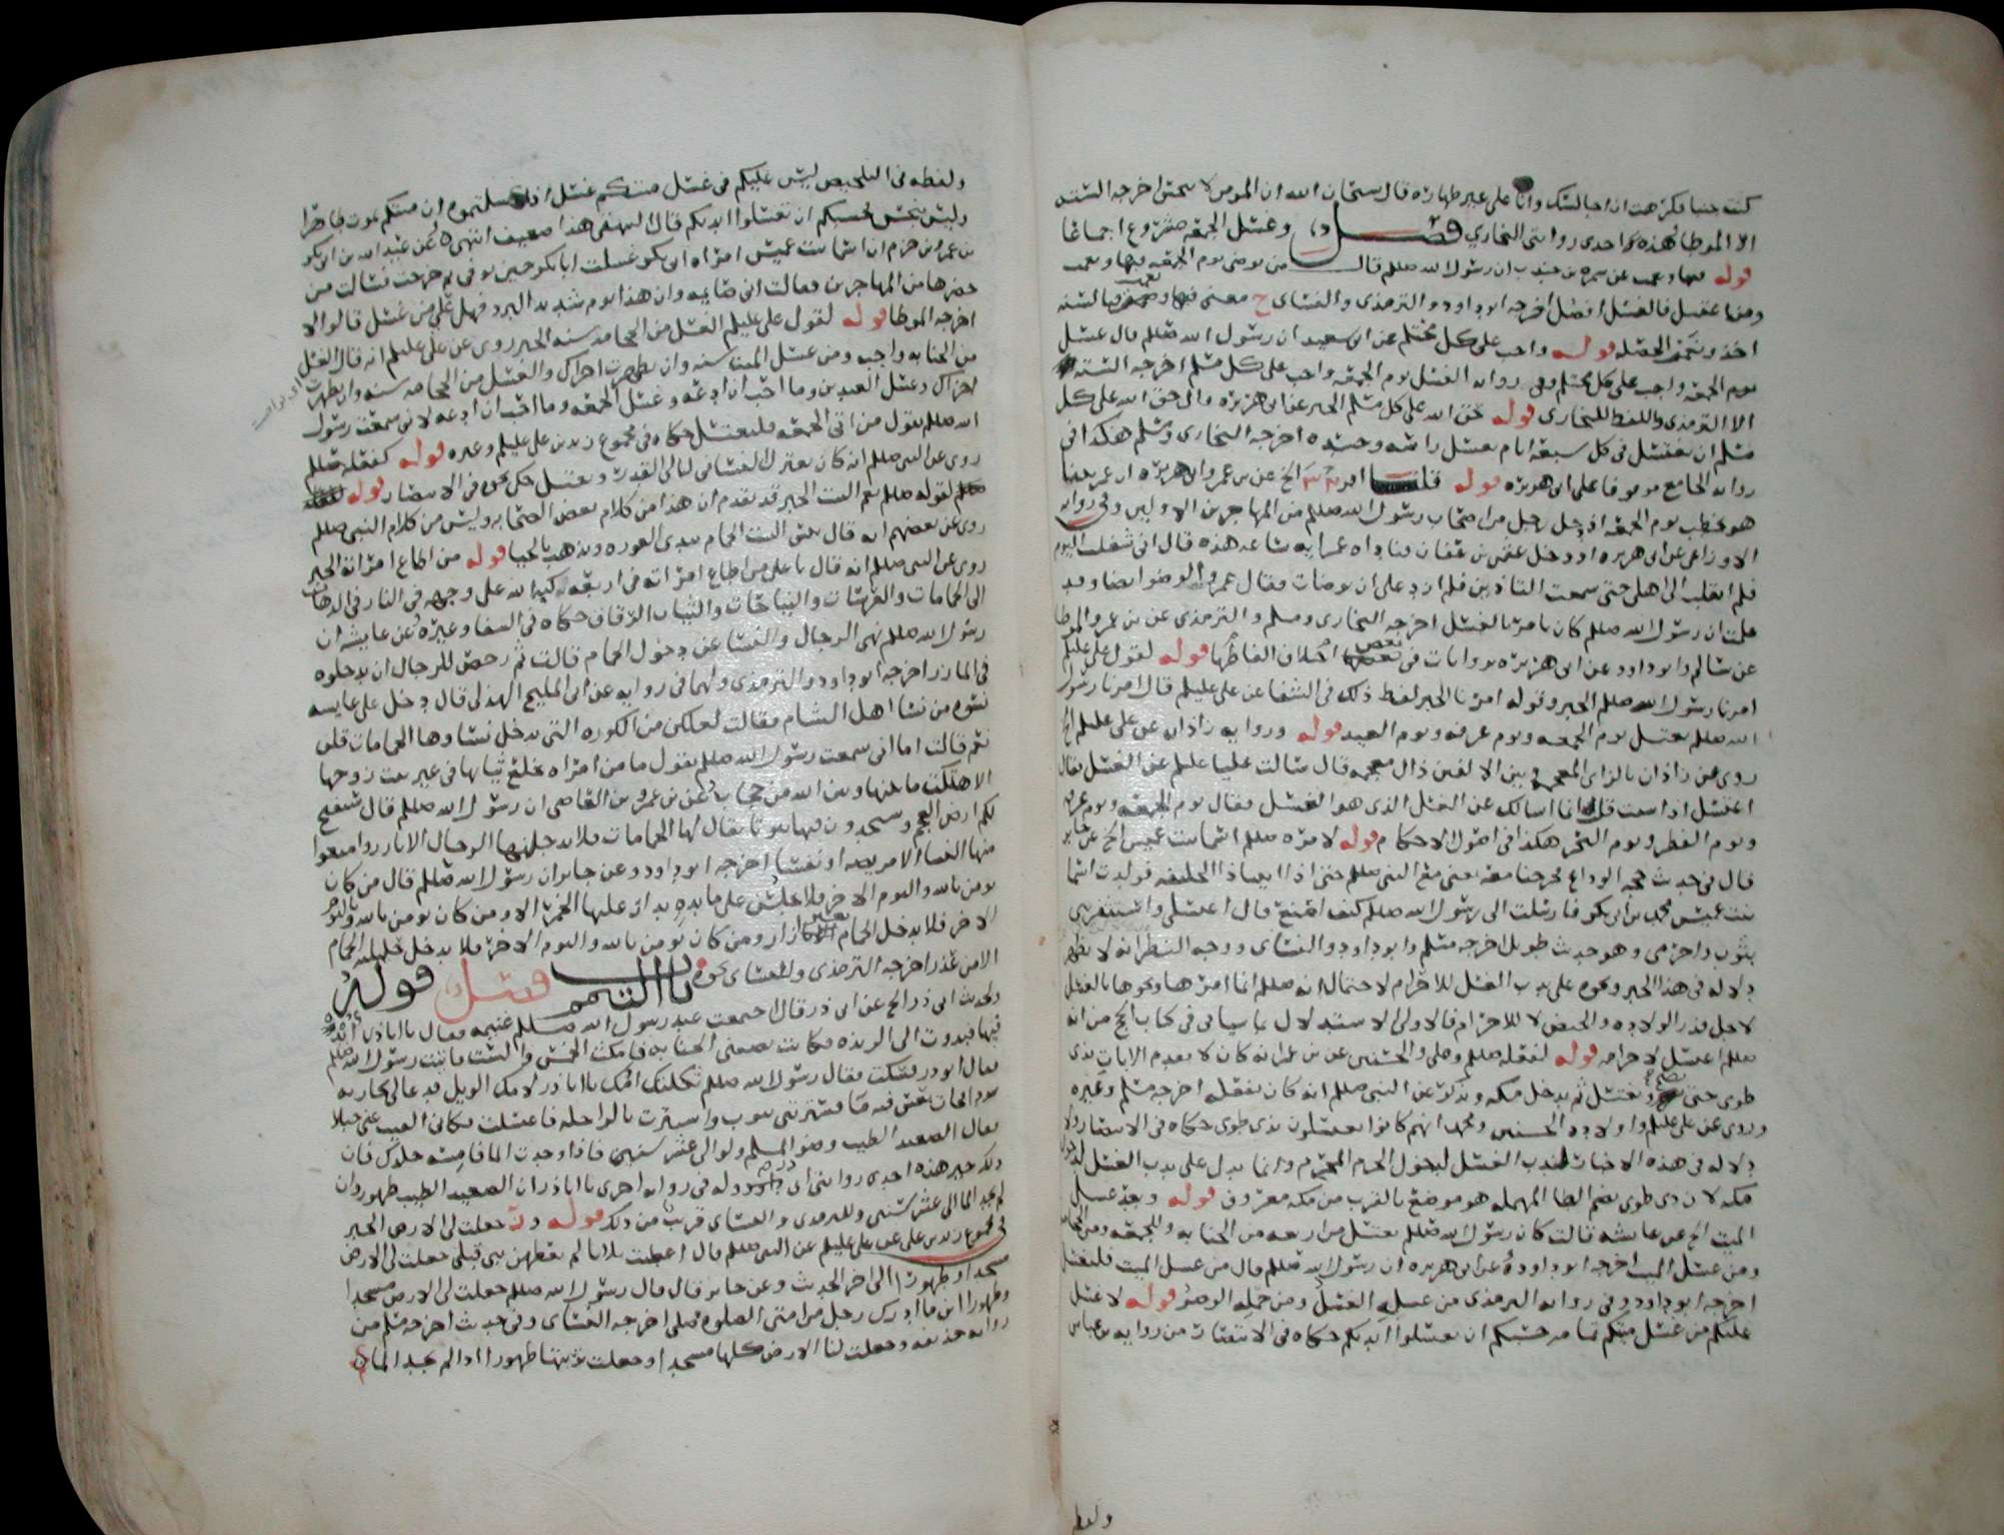 كنت جنبا فكرهت ان اجالسك وانا على غير طهاره قال سبحان الله ان المومن لا ينجس اخرجه الستة
الا الموطا وهذه احدى روايتى البخاري فصل وغسل الجمعه مشروع اجماعا
قوله فبها ونعمت عن سمره بن جندب ان رسول الله صللم قال من توضى يوم الجمعه فبها ونعمت
ومن اغتسل فالغسل افضل اخرجه ابو داود والترمذى والنساى ح معنى فبها ونعمت فبالسنه
اخذ ونعمت الخصله قوله واجب على كل محتلم عن ابى سعيد ان رسول الله صللم قال غسل
يوم الجمعه واجب على كل محتلم وفى روايه الغسل يوم الجمعه واجب على كل مسلم اخرجه الستة
الا الترمذى واللفظ للبخارى قوله حق الله على كل مسلم الخبر عن ابى هريره قال حق الله على كل
مسلم ان يغتسل فى كل سبعة ايام يغسل راسه وجسده اخرجه البخارى ومسلم هكذا فى
روايه الجامع موقوفا على ابى هريره قوله قلنا الخ عن بن عمر وابى هريره ان عمر بينا
هو يخطب يوم الجمعه اذ دخل رجل من اصحاب رسول الله صللم من المهاجرين الاولين وفى روايه
الاوزاعى عن ابى هريره اذ دخل عثمن بن عفان فناداه عمر ايه ساعه هذه قال انى شغلت اليوم
فلم انقلب الى اهلى حتى سمعت التاذين فلم ازد على ان توضات فقال عمر والوضو ايضا وقد
علمت ان رسول الله صللم كان يامر بالغسل اخرجه البخارى ومسلم والترمذى عن بن عمر والموطا
عن سالم وابو داود عن ابى هريره بروايات فى بعض اختلاف الفاظها قوله لقول على عليلم
امرنا رسول الله صللم الخبر وقوله امرنا الخبر لفظ ذلك فى الشفا عن على عليلم قال امرنا رسول
الله صللم بغسل يوم الجمعه ويوم عرفه ويوم العيد قوله وروايه زاذان عن على عليلم الخ
روى عن زاذان بالزاى المعجمه وبين الالفين ذال معجمه قال سالت عليا عليلم عن الغسل فقال
اغتسل اذا شئت قلت انما اسالك عن الغسل الذى هو الغسل فقال يوم الجمعه ويوم عرفه
ويوم الفطر ويوم النحر هكذا فى اصول الاحكام قوله لامره صللم اسما بنت عميس الخ عن جابر
قال فى حديث حجه الوداع فخرجنا معه يعنى مع النبى صللم حتى اذا اتينا ذا الحليفه فولدت اسما
بنت عميس محمد بن ابى بكر فارسلت الى رسول الله صللم كيف اصنع قال اغتسلى واستثفرى
بثوب واحرمى وهو حديث طويل اخرجه مسلم وابو داود والنساى ووجه النظر انه لا يظهر
دلاله فى هذا الخبر ونحوه على ندب الغسل للاحرام لاحتمال انه صللم انما امرها ونحوها بالغسل
لاجل قذر الولاده والحيض لا للاحرام فالاولى الاستدلال بما سياتى فى كتاب الحج من انه
صللم اغتسل لاحرامه قوله لفعله صللم وعلى والحسنين عن بن عمر انه كان لا يقدم الا بات بذى
طوى حتى يصبح ويغتسل ثم يدخل مكه ويذكر عن النبى صللم انه كان يفعله اخرجه مسلم وغيره
وروى عن على عليلم واولاده الحسنين ومحمد انهم كانوا يغتسلون بذى طوى حكاه فى الانتصار ولا
دلاله فى هذه الاخبار لندب الغسل لدخول الحرم المحرم وانما يدل على ندب الغسل لدخول
مكه لان ذى طوى بضم الطا المهمله هو موضع بالقرب من مكه معروف قوله وبعد غسل
الميت الخ عن عايشه قالت كان رسول الله صللم يغتسل من اربعه من الجنابه والجمعه ومن الحجامه
ومن غسل الميت اخرجه ابو داود وعن ابى هريره ان رسول الله صللم قال من غسل الميت فليغتسل
اخرجه ابو داود وفى روايه الترمذى من غسله الغسل ومن حمله الوضو قوله لا غسل
عليكم من غسل ميتكم تمامه حسبكم ان تغسلوا ايديكم حكاه فى الانتصار من روايه بن عباس
ولفظ
ولفظه فى التلخيص ليس عليكم فى غسل ميتكم غسل اذا غسلتموه ان ميتكم يموت طاهرا
وليس بنجس فحسبكم ان تغسلوا ايديكم قال البيهقى هذا ضعيف انتهى وعن عبد الله بن ابى بكر
بن عمرو بن حزم ان اسما بنت عميس امراه ابى بكر غسلت ابا بكر حين توفى ثم خرجت فسالت من
حضرها من المهاجرين فقالت انى صايمه وان هذا يوم شديد البرد فهل على من غسل قالوا لا
اخرجه الموطا قوله لقول على عليلم الغسل من الحجامه سنه الخبر روى عن على عليلم انه قال الغسل
من الجنابه واجب ومن غسل الميت سنه وان تطهرت اجزاك والغسل من الحجامه سنه وان تطهرت
اجزاك وغسل العيدين وما احب ان ادعه وغسل الجمعه وما احب ان ادعه لانى سمعت رسول
الله صللم يقول من اتى الجمعه فليغتسل حكاه فى مجموع زيد بن على عليلم وغيره قوله كفعله صللم
روى عن النبى صللم انه كان يعتزل النسا فى ليالى القدر ويغتسل حكى نحوه فى الانتصار قوله
لقوله صللم نعم البيت الخبر قد تقدم ان هذا من كلام بعض الصحابه وليس من كلام النبى صللم
روى عن بعضهم انه قال بيس البيت الحمام يبدى العوره ويذهب بالحيا قوله من اطاع امراته الخبر
روى عن النبى صللم انه قال يا على من اطاع امراته فى اربعه كبه الله على وجهه فى النار فى الذهاب
الى الحمامات والعرسات والنياحات والثياب الرقاق حكاه فى الشفا وغيره وعن عايشه ان
رسول الله صللم نهى الرجال والنسا عن دخول الحمام قالت ثم رخص للرجال ان يدخلوه
فى المازر اخرجه ابو داود والترمذى ولهما فى روايه عن ابى المليح الهذلى قال دخل على عايشه
نسوه من نسا اهل الشام فقالت لعلكن من الكوره التى يدخل نساوها الحمامات قلن
نعم قالت اما انى سمعت رسول الله صللم يقول ما من امراه تخلع ثيابها فى غير بيت زوجها
الا هتكت ما بينها وبين الله من حجاب وعن بن عمرو بن العاصى ان رسول الله صللم قال ستفتح
لكم ارض العجم وستجدون فيها بيوتا يقال لها الحمامات فلا يدخلنها الرجال الا بازر وامنعوا
منها النسا الا مريضه او نفسا اخرجه ابو داود وعن جابر ان رسول الله صللم قال من كان
يومن بالله واليوم الاخر فلا يجلس على مايده يدار عليها الخمر ومن كان يومن بالله واليوم
الاخر فلا يدخل الحمام بغير ازار ومن كان يومن بالله واليوم الاخر فلا يدخل حليلته الحمام
الا من عذر اخرجه الترمذى وللنساى نحوه باب التيمم فصل قوله
وحديث ابى ذر الخ عن ابى ذر قال اجتمعت عند رسول الله صللم غنيمه فقال يا ابا ذر ابد
فيها فبدوت الى الربذه فكانت تصيبنى الجنابه فامكث الخمس والست فاتيت رسول الله صللم
فقال ابو ذر فسكت فقال رسول الله صللم ثكلتك امك يا ابا ذر لامك الويل فدعا لى بجاريه
سودا فجات بعس فيه ما فسترتنى بثوب واستترت بالراحله فاغتسلت فكانى القيت عنى جبلا
فقال الصعيد الطيب وضو المسلم ولو الى عشر سنين فاذا وجدت الما فامسه جلدك فان
ذلك خير هذه احدى روايتى ابى داود وله فى روايه اخرى يا ابا ذر ان الصعيد الطيب طهور وان
لم تجد الما الى عشر سنين وللترمذى والنساى قريب من ذلك قوله وجعلت لى الارض الخبر
فى مجموع زيد بن على عن على عليلم عن النبى صللم قال اعطيت ثلاثا لم يعطهن نبى قبلى جعلت لى الارض
مسجدا وطهورا الى اخر الحديث وعن جابر قال قال رسول الله صللم جعلت لى الارض مسجدا
وطهورا اين ما ادرك رجل من امتى الصلوه صلى اخرجه النساى وفى حديث اخرجه مسلم من
روايه حذيفه وجعلت لنا الارض كلها مسجدا وجعلت تربتها طهورا اذا لم نجد الما